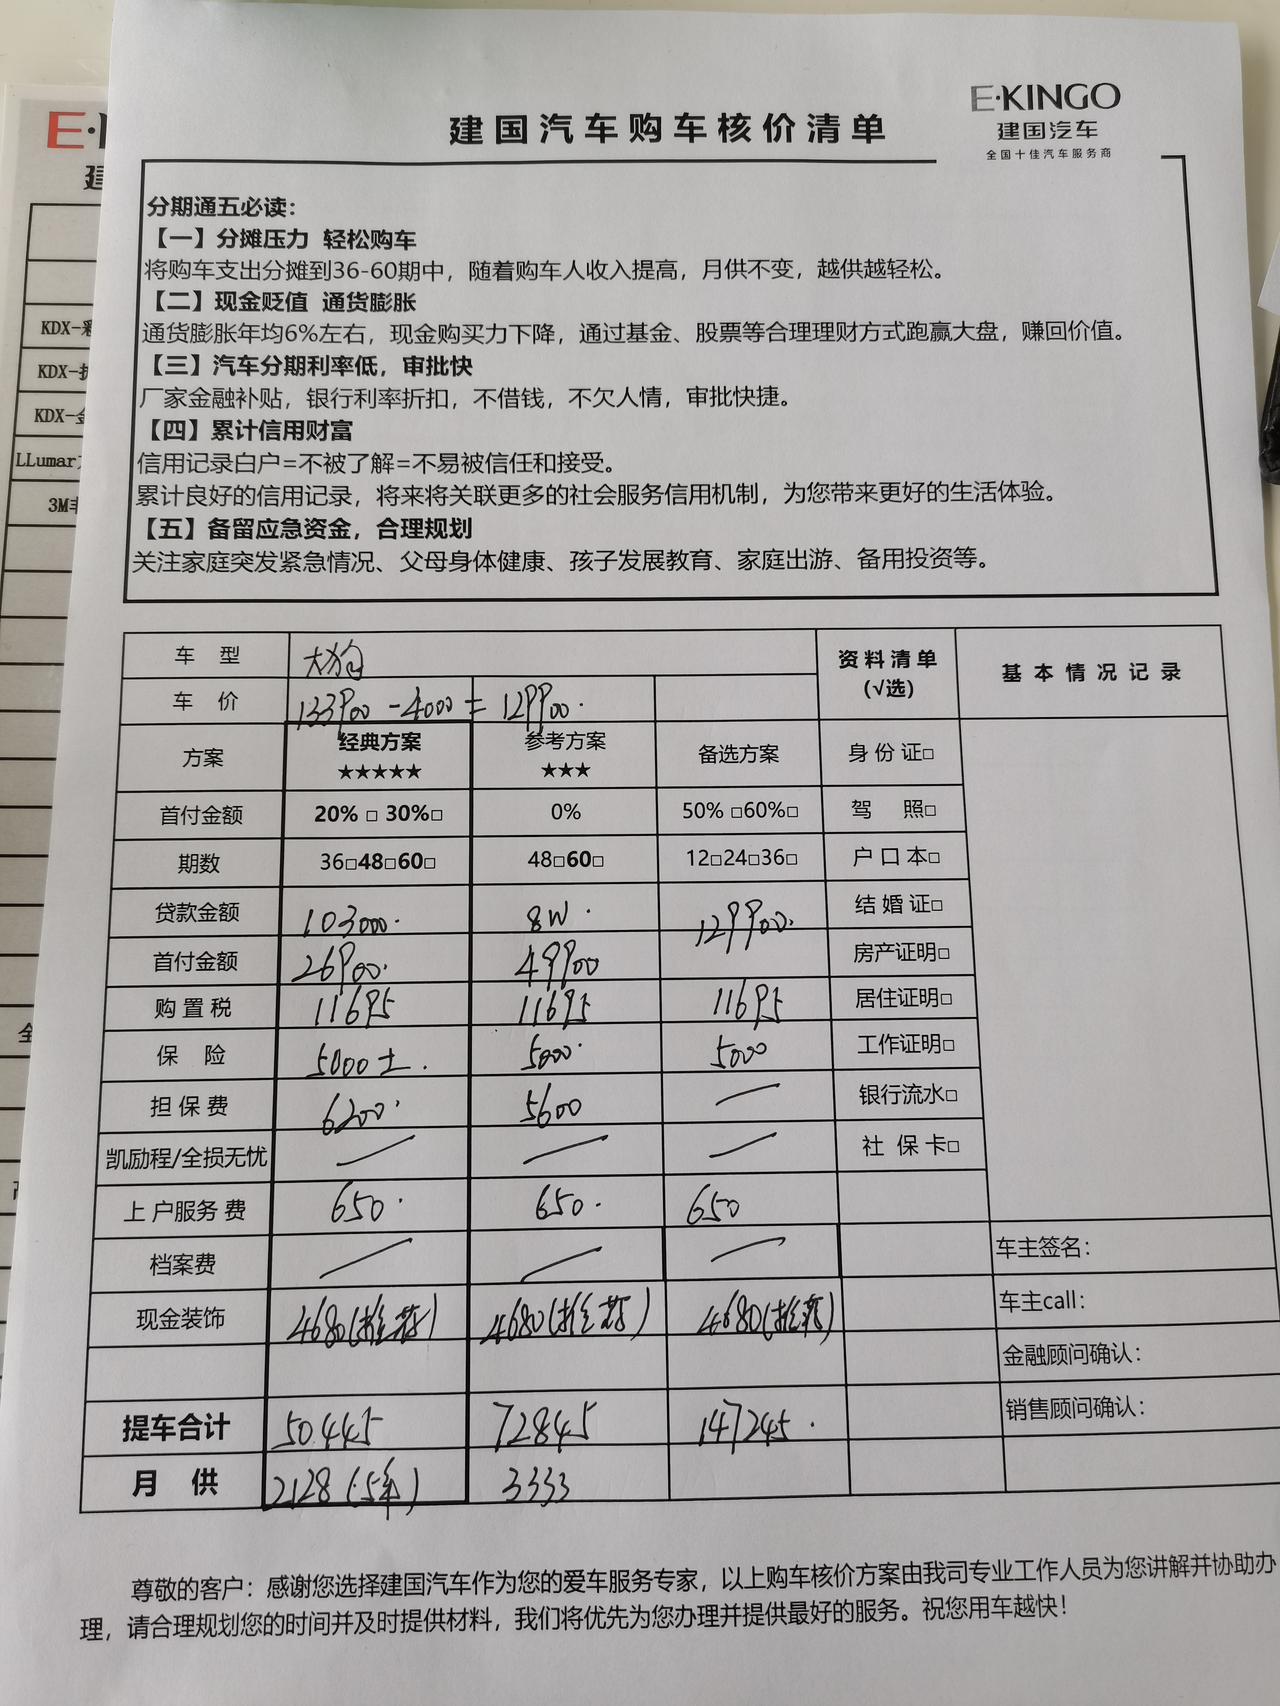 E·KINGO
建国汽车
全国十佳汽车服务商
建国汽车购车核价清单
分期通五必读：
【一】分摊压力 轻松购车
将购车支出分摊到36-60期中，随着购车人收入提高，月供不变，越供越轻松。
【二】现金贬值 通货膨胀
通货膨胀年均6%左右，现金购买力下降，通过基金、股票等合理理财方式跑赢大盘，赚回价值。
【三】汽车分期利率低，审批快
厂家金融补贴，银行利率折扣，不借钱，不欠人情，审批快捷。
【四】累计信用财富
信用记录白户=不被了解=不易被信任和接受。
累计良好的信用记录，将来将关联更多的社会服务信用机制，为您带来更好的生活体验。
【五】备留应急资金，合理规划
关注家庭突发紧急情况、父母身体健康、孩子发展教育、家庭出游、备用投资等。
车 型 大狗 资料清单 (√选) 基本情况记录
车 价 133900-4000=129900.
方案 经典方案 ★★★★★ 参考方案 ★★★ 备选方案 身份证□
首付金额 20% □ 30%□ 0% 50% □60%□ 驾 照□
期数 36□48□60□ 48□60□ 12□24□36□ 户口本□
贷款金额 103000. 8W. 129900. 结婚证□
首付金额 26900. 49900 房产证明□
购置税 11695 11695 11695 居住证明□
保 险 5000±. 5000. 5000 工作证明□
担保费 6200. 5600 — 银行流水□
凯励程/全损无忧 — — — 社保卡□
上户服务费 650. 650. 650
档案费 — — — 车主签名：
现金装饰 4680(推荐) 4680(推荐) 4680(推荐) 车主call：
金融顾问确认：
提车合计 50445 72845 147245. 销售顾问确认：
月 供 2128(5年) 3333
尊敬的客户：感谢您选择建国汽车作为您的爱车服务专家，以上购车核价方案由我司专业工作人员为您讲解并协助办
理，请合理规划您的时间并及时提供材料，我们将优先为您办理并提供最好的服务。祝您用车越快！
E·
建
KDX-
KDX-
KDX-
LLumar
3M
全